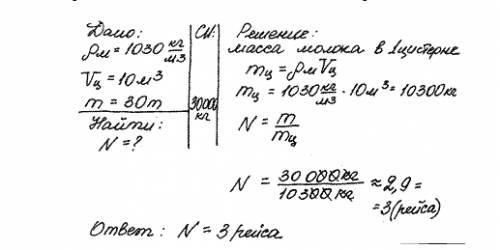 Дано:
ρм = 1030 кг/м3
Vц = 10 м3
m = 30т
Найти:
N = ?
СИ:
30000 кг
Решение:
масса молока в 1 цистерне
mц = ρмVц
mц = 1030 кг/м3 · 10 м3 = 10300 кг
N = m/mц
N = 30 000 кг/10300 кг ≈ 2,9 =
= 3 (рейса)
Ответ: N = 3 рейса